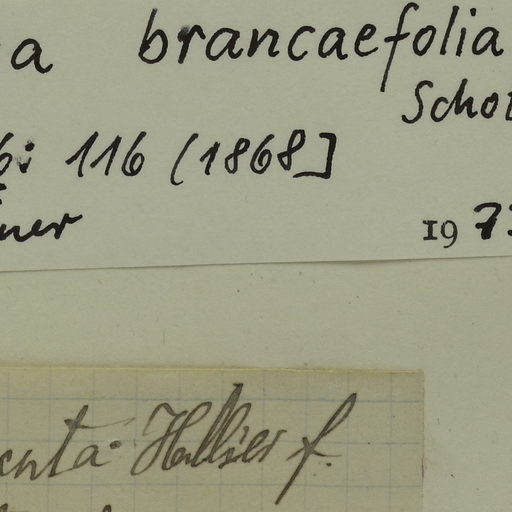 a brancaefolia
Scho
6: 116 (1868]
ner
19 73
enta Hallier f.